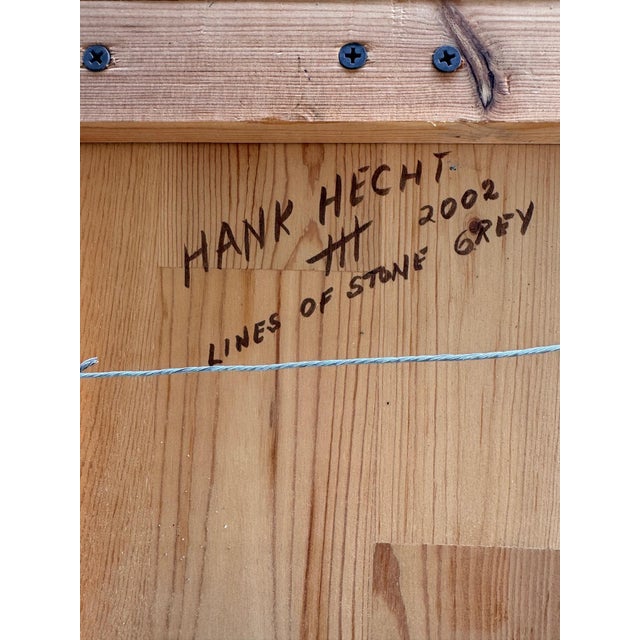 HANK HECHT
III 2002
LINES OF STONE GREY